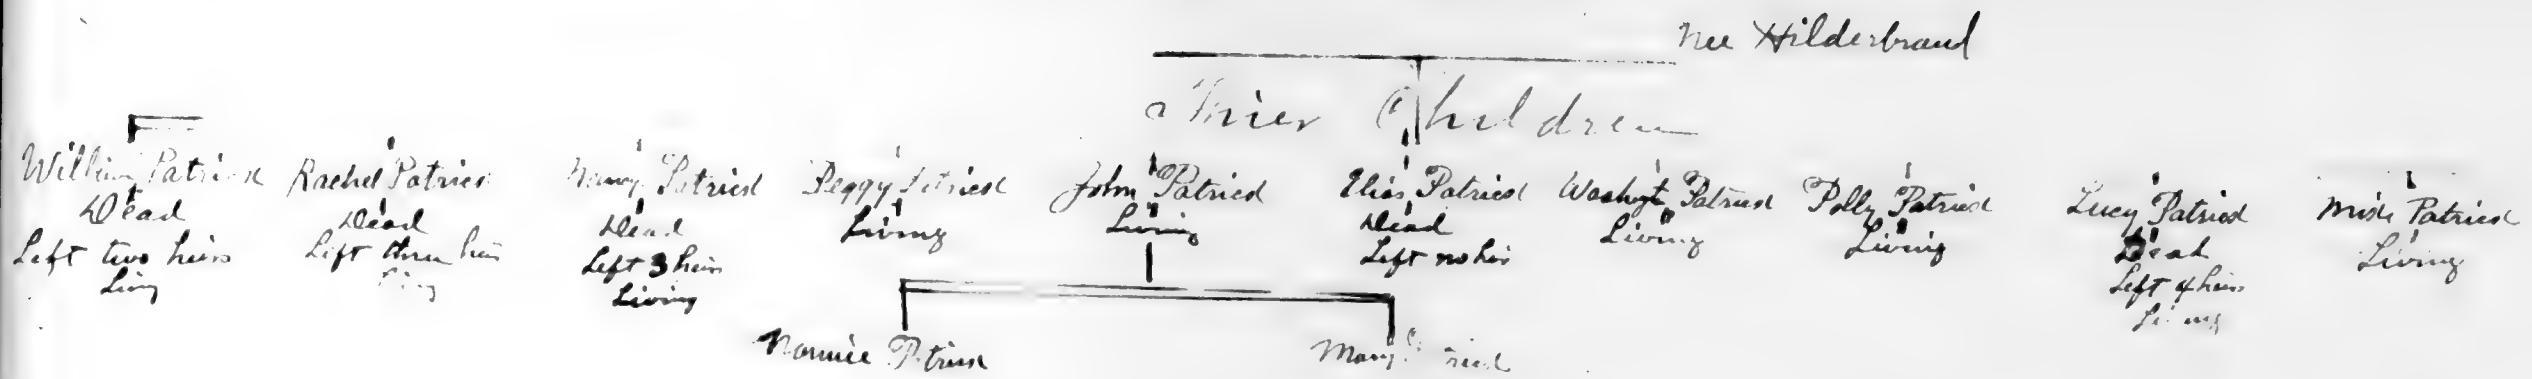 Nee Hilderbrand
Thier Children
William Patrick
Dead
Left two heirs
Living
Rachel Patrick
Dead
Left three heirs
Living
Nancy Patrick
Dead
Left 3 heirs
Living
Peggy Patrick
Living
John Patrick
Living
Elias Patrick
Dead
Left no heir
Washigt Patrick
Living
Polly Patrick
Living
Lucy Patrick
Dead
Left 4 heirs
Living
Patrick
Living
Nannie Patrick
Mary